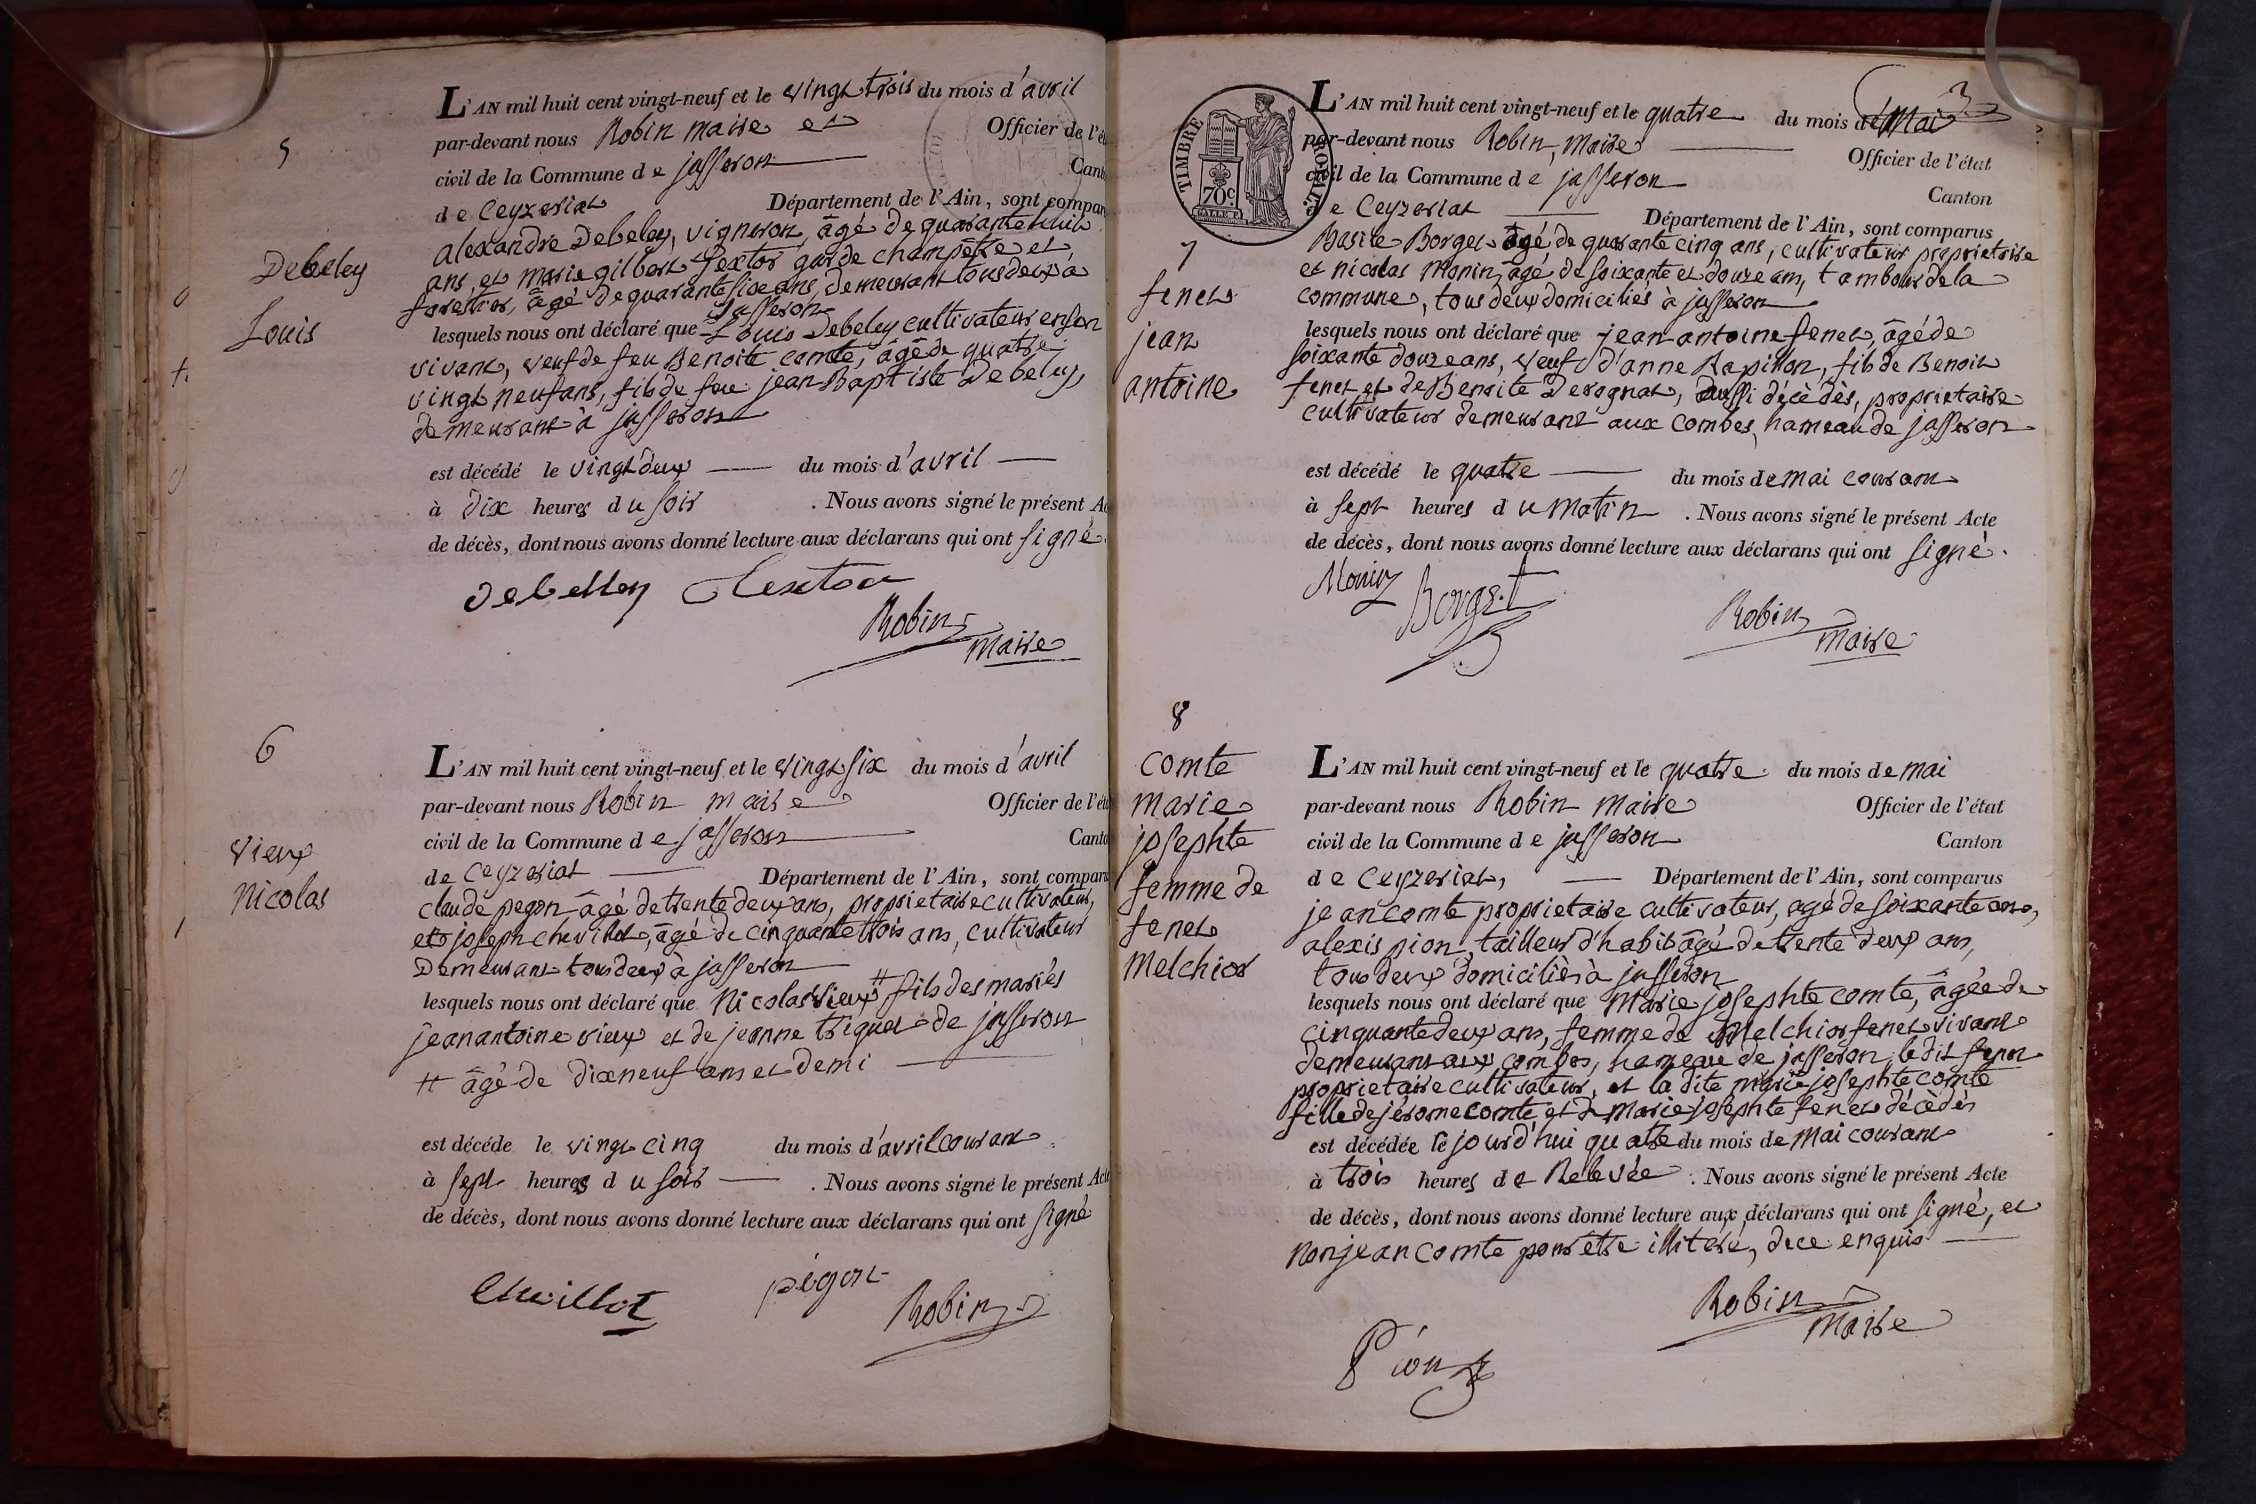 5
Debeley
Louis
L'AN mil huit cent vingt-neuf et le vingt trois du mois d'avril
par-devant nous Robin maire et Officier de l'ét
civil de la Commune de jasseron Cant
de Ceyzeriat Département de l'Ain, sont compar
alexandre Debeley, vigneron, âgé de quarante huit
ans, et marie gilbert Sextor garde champêtre et
forestier, âgé de quarante six ans, demeurant tous deux à
jasseron
lesquels nous ont déclaré que Louis Debeley cultivateur en son
vivant, veuf de feu Benoite comte, âgé de quatre
vingt neuf ans, fils de feu jean Baptiste Debeley,
demeurant à jasseron
est décédé le vingt deux du mois d'avril
à dix heures du soir . Nous avons signé le présent Ac
de décès, dont nous avons donné lecture aux déclarans qui ont signé.
Debelley Sextor
Robin
maire
6
vieux
Nicolas
L'AN mil huit cent vingt-neuf et le vingt six du mois d'avril
par-devant nous Robin maire Officier de l'éta
civil de la Commune de jasseron Canto
de Ceyzeriat Département de l'Ain, sont comparu
claude pegon âgé de trente deux ans, proprietaire cultivateur,
et joseph chevillot, âgé de cinquante trois ans, cultivateur
Demeurant tous deux à jasseron
lesquels nous ont déclaré que Nicolas vieux # fils des mariés
jean antoine vieux et de jeanne triquet de jasseron
# âgé de dix neuf ans et demi
est décéde le vingt cinq du mois d'avril courant
à sept heures du soir . Nous avons signé le présent Acte
de décès, dont nous avons donné lecture aux déclarans qui ont signé
Chevillot pégon
Robin
3
TIMBRE ROYAL
70c
7
fenet
jean
antoine
L'AN mil huit cent vingt-neuf et le quatre du mois de mai
par-devant nous Robin, maire Officier de l'état
civil de la Commune de jasseron Canton
de Ceyzeriat Département de l'Ain, sont comparus
Basile Borget âgé de quarante cinq ans, cultivateur proprietaire
et nicolas Monin, âgé de soixante et douze ans, tambour de la
commune, tous deux domiciliés à jasseron
lesquels nous ont déclaré que jean antoine fenet, âgé de
soixante douze ans, veuf d'anne Rapillon, fils de Benoit
fenet et de Benoite Derognat, aussi décèdès, proprietaire
cultivateur demeurant aux combes, hameau de jasseron
est décédé le quatre du mois de mai courant
à sept heures du matin . Nous avons signé le présent Acte
de décès, dont nous avons donné lecture aux déclarans qui ont signé.
Monin Borget
Robin
maire
8
comte
marie
josephte
femme de
fenet
Melchior
L'AN mil huit cent vingt-neuf et le quatre du mois de mai
par-devant nous Robin maire Officier de l'état
civil de la Commune de jasseron Canton
de Ceyzeriat, Département de l'Ain, sont comparus
jean comte proprietaire cultivateur, agé de soixante ans,
alexis pion, tailleur d'habits âgé de trente deux ans,
tous deux domiciliès à jasseron
lesquels nous ont déclaré que Marie josephte comte, âgée de
cinquante deux ans, femme de Melchior fenet vivant
demeurant aux combes, hameau de jasseron, ledit fenet
proprietaire cultivateur, et la dite marie josephte comte
fille de jérome comte et de Marie josephte fenet décèdés
est décédée le jourd'hui quatre du mois de mai courant
à trois heures de Relevée . Nous avons signé le présent Acte
de décès, dont nous avons donné lecture aux déclarans qui ont signé, et
non jean comte pour être illiteré, de ce enquis
Robin
maire
Pion